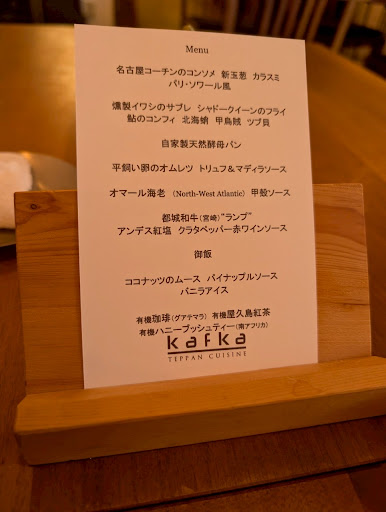 Menu
名古屋コーチンのコンソメ 新玉葱 カラスミ
パリ・ソワール風
燻製イワシのサブレ シャドークイーンのフライ
鮎のコンフィ 北海蛸 甲烏賊 ツブ貝
自家製天然酵母パン
平飼い卵のオムレツ トリュフ＆マディラソース
オマール海老 （North-West Atlantic） 甲殻ソース
都城和牛（宮崎）“ランプ”
アンデス紅塩 クラタペッパー赤ワインソース
御飯
ココナッツのムース パイナップルソース
バニラアイス
有機珈琲（グアテマラ） 有機屋久島紅茶
有機ハニーブッシュティー（南アフリカ）
kafka
TEPPAN CUISINE